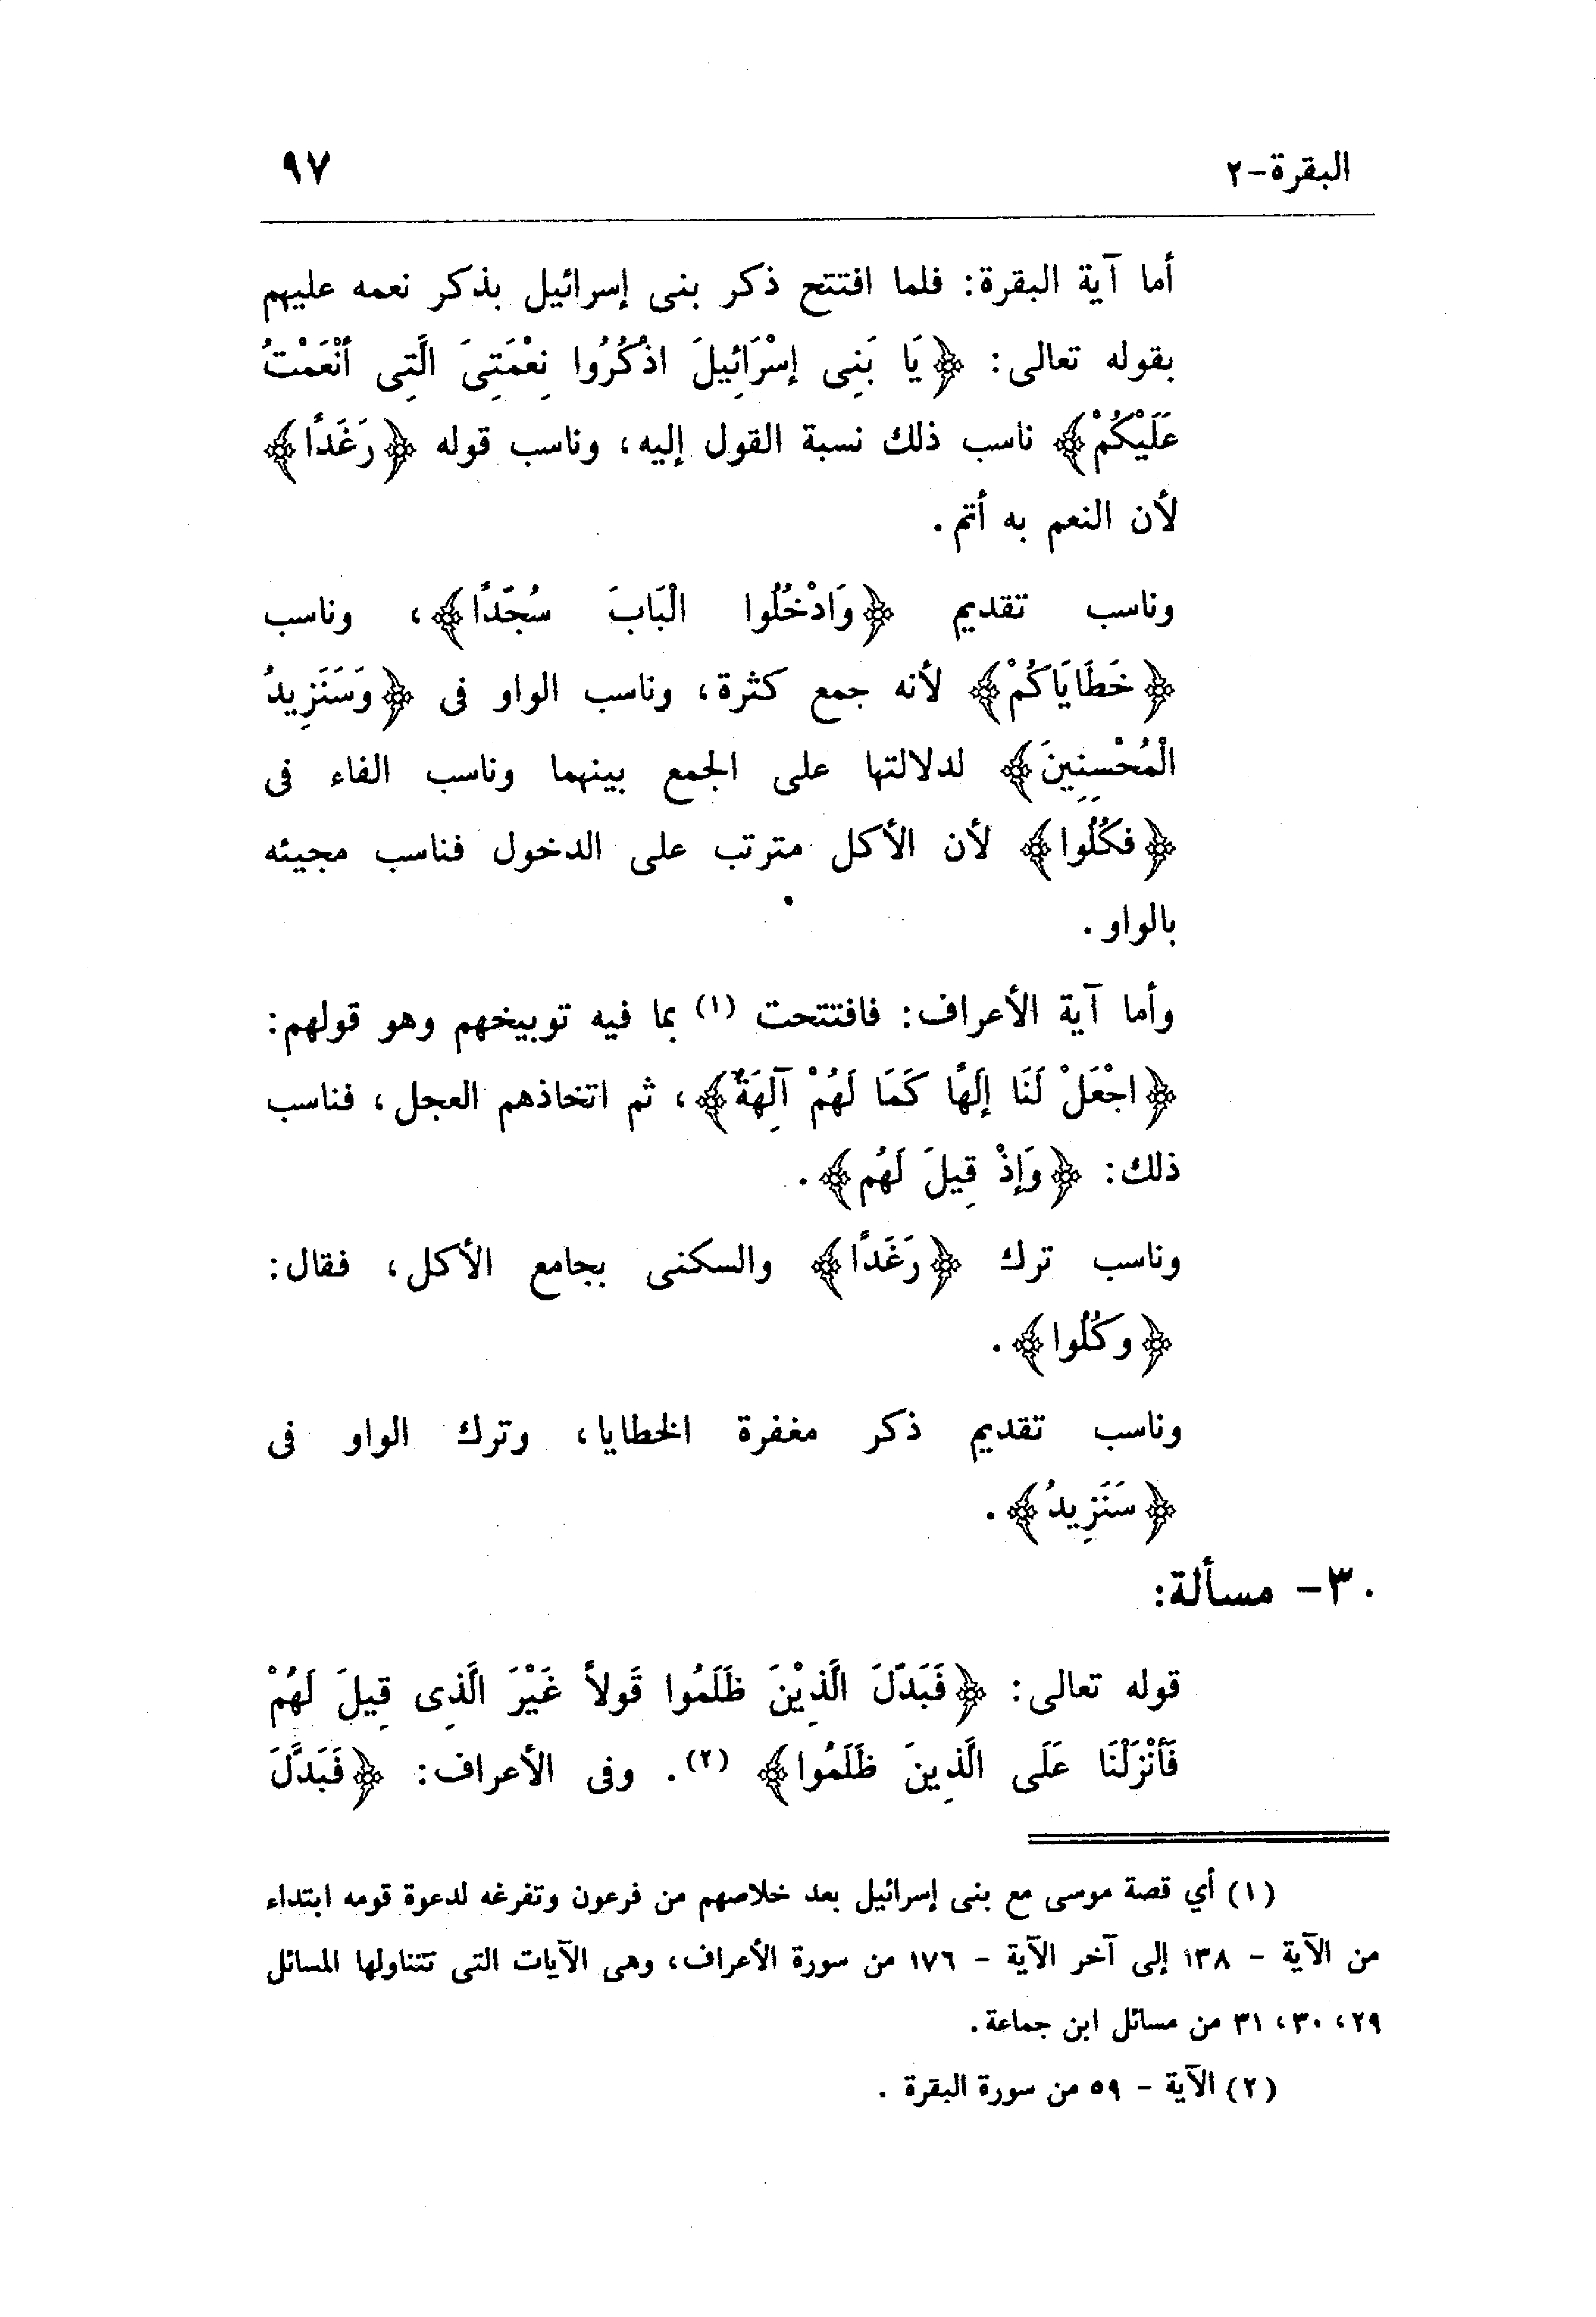 البقرة-٢ ٩٧
أما آية البقرة: فلما افتتح ذكر بنى إسرائيل بذكر نعمه عليهم
بقوله تعالى: ﴿يَا بَنِى إسْرَائِيلَ اذْكُرُوا نِعْمَتِىَ الَّتِى أنْعَمْتُ
عَلَيْكُمْ﴾ ناسب ذلك نسبة القول إليه، وناسب قوله ﴿رَغَدًا﴾
لأن النعم به أتم.
وناسب تقديم ﴿وَادْخُلُوا الْبَابَ سُجَّدًا﴾، وناسب
﴿خَطَايَاكُمْ﴾ لأنه جمع كثرة، وناسب الواو فى ﴿وَسَنَزِيدُ
الْمُحْسِنِينَ﴾ لدلالتها على الجمع بينهما وناسب الفاء فى
﴿فكُلُوا﴾ لأن الأكل مترتب على الدخول فناسب مجيئه
بالواو.
وأما آية الأعراف: فافتتحت (١) بما فيه توبيخهم وهو قولهم:
﴿اجْعَلْ لَنَا إلَهًا كَمَا لَهُمْ آلِهَةٌ﴾، ثم اتخاذهم العجل، فناسب
ذلك: ﴿وَإذْ قِيلَ لَهُم﴾.
وناسب ترك ﴿رَغَدًا﴾ والسكنى بجامع الأكل، فقال:
﴿وكُلُوا﴾.
وناسب تقديم ذكر مغفرة الخطايا، وترك الواو فى
﴿سَنَزِيدُ﴾.
٣٠- مسألة:
قوله تعالى: ﴿فَبَدَّلَ الَّذِيْنَ ظَلَمُوا قَولاً غَيْرَ الَّذِى قِيلَ لَهُمْ
فَأنْزَلْنَا عَلَى الَّذِينَ ظَلَمُوا﴾ (٢). وفى الأعراف: ﴿فَبَدَّلَ
(١) أي قصة موسى مع بنى إسرائيل بعد خلاصهم من فرعون وتفرغه لدعوة قومه ابتداء
من الآية - ١٣٨ إلى آخر الآية - ١٧٦ من سورة الأعراف، وهى الآيات التى تتناولها المسائل
٢٩، ٣٠، ٣١ من مسائل ابن جماعة.
(٢) الآية - ٥٩ من سورة البقرة.